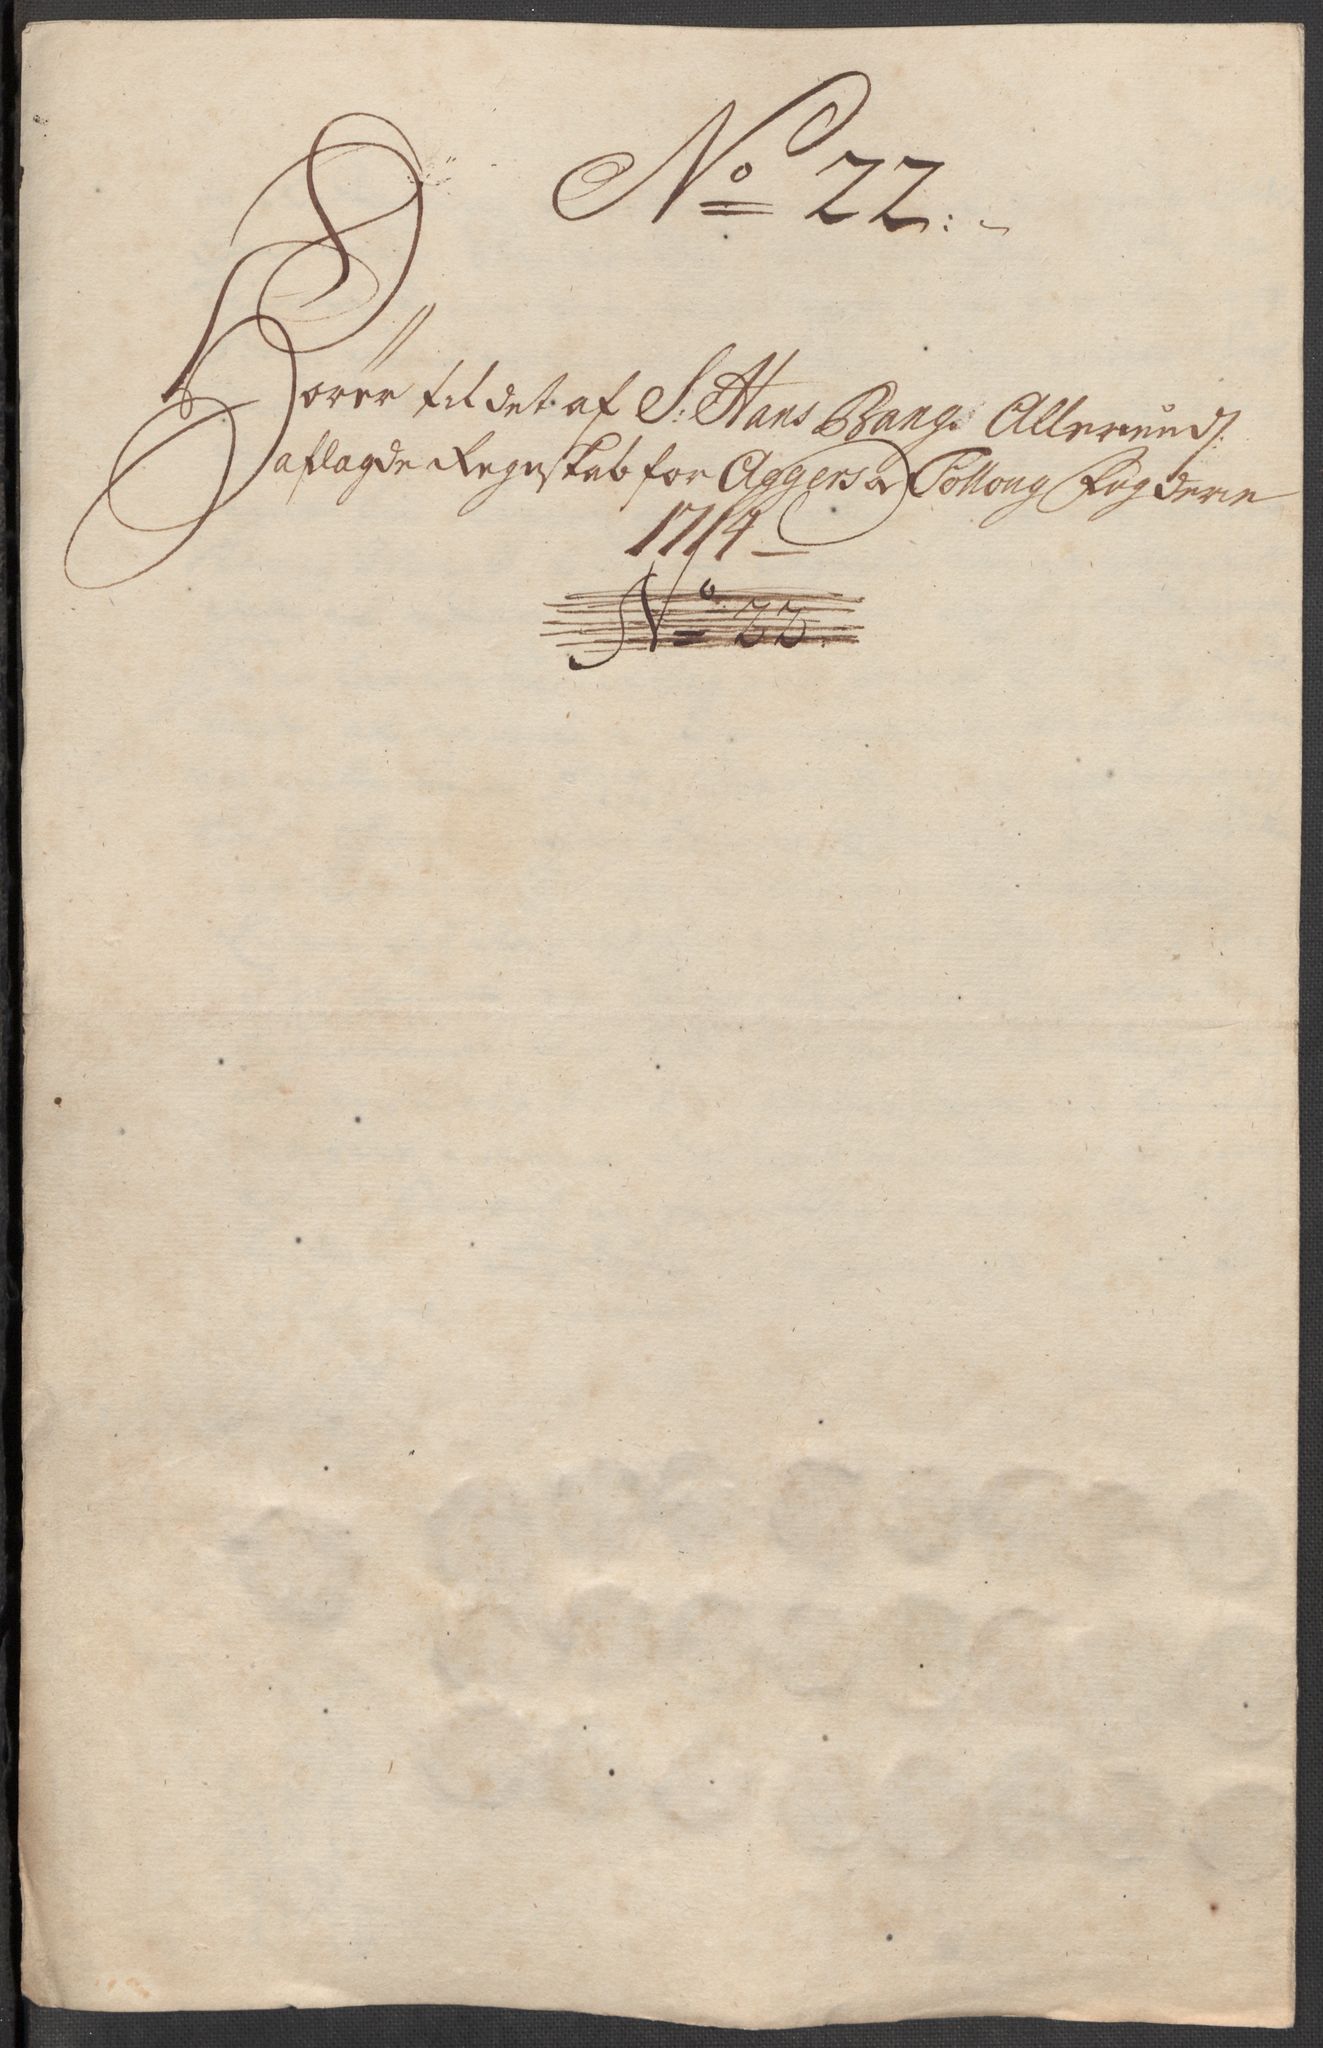 No 22.
Hører til det af S: Hans Bang Allerunds:
aflagde Regnskab for Aggers og Follong Fogderie
1714
No. 22.